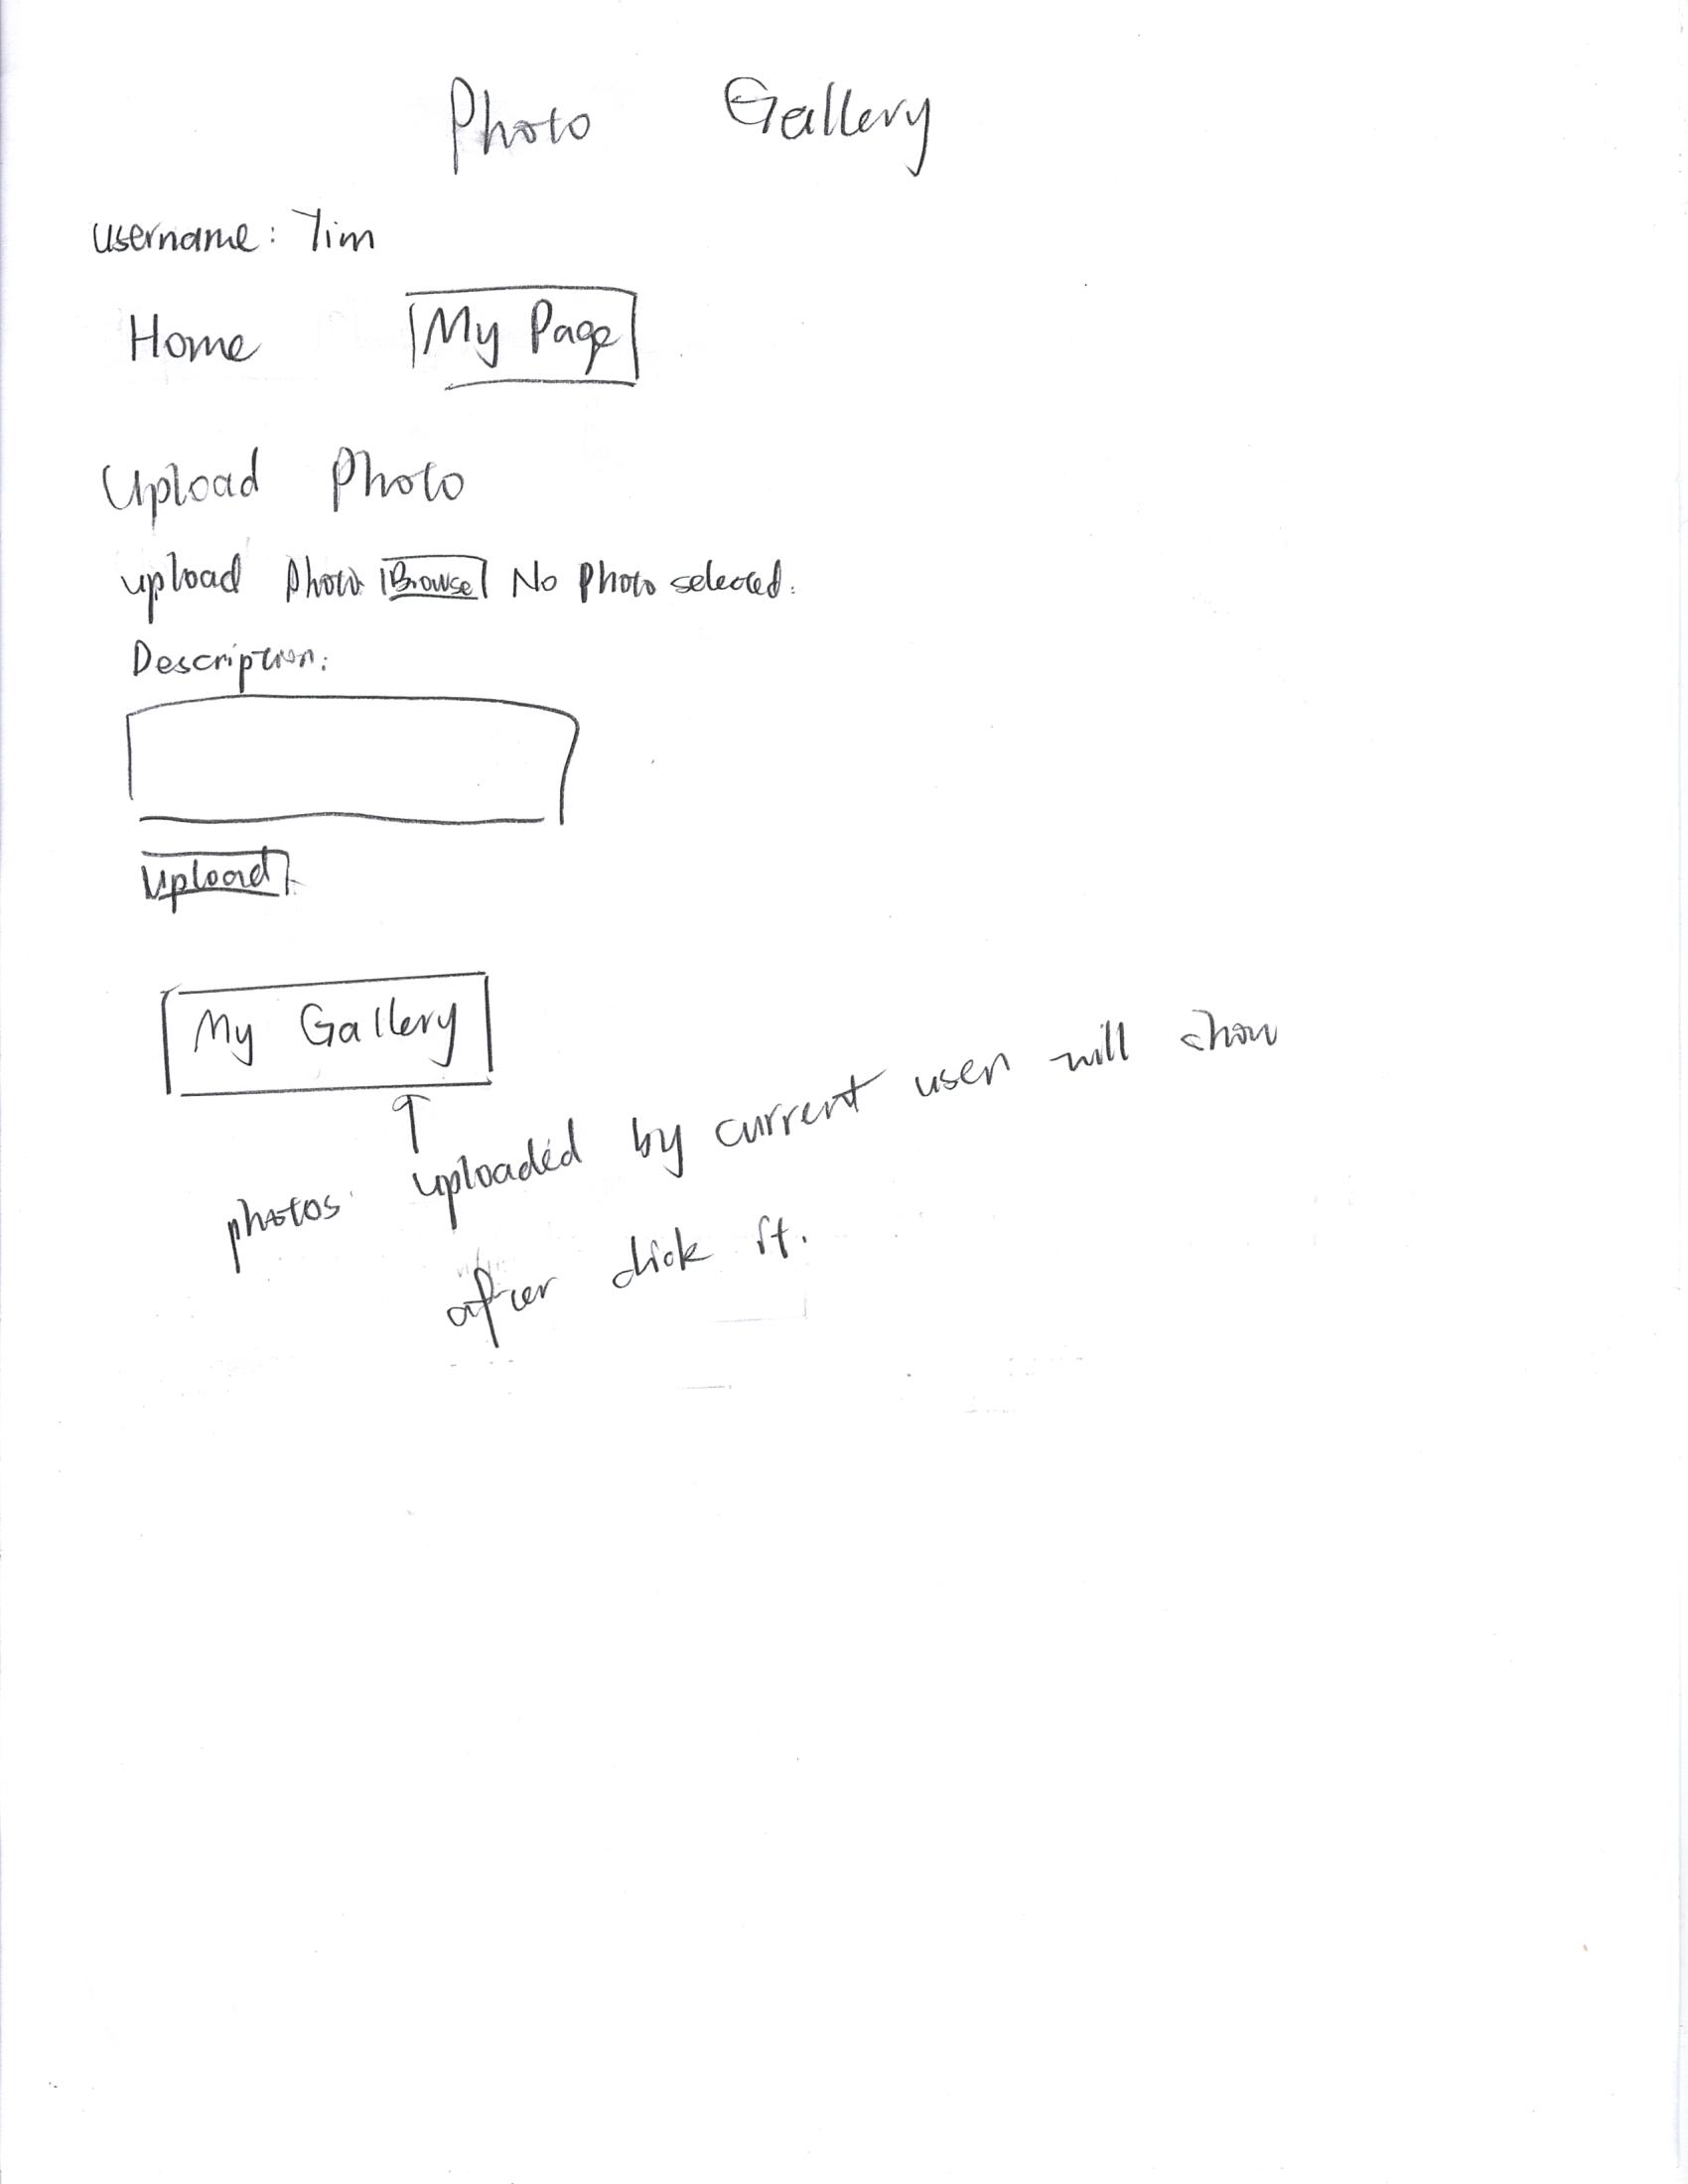 Photo Gallery
username: Tim
Home My Page
Upload Photo
upload photo Browse No Photo selected.
Description:
Upload
My Gallery
photos uploaded by current user will show
after click it.